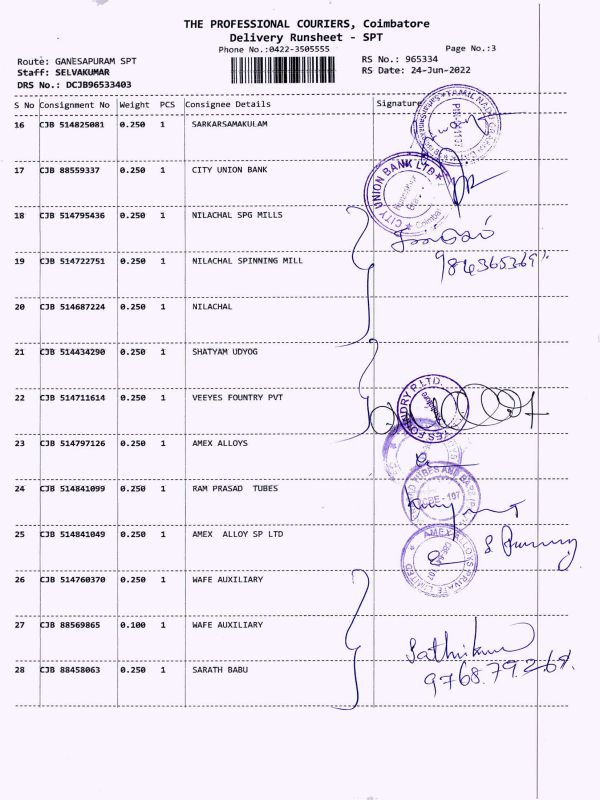 THE PROFESSIONAL COURIERS, Coimbatore
Delivery Runsheet - SPT
Phone No.:0422-3505555
Page No.:3
Route: GANESAPURAM SPT
RS No.: 965334
Staff: SELVAKUMAR
RS Date: 24-Jun-2022
DRS No.: DCJB96533403
S No Consignment No Weight PCS Consignee Details Signature
16 CJB 514825081 0.250 1 SARKARSAMAKULAM
17 CJB 88559337 0.250 1 CITY UNION BANK
CITY UNION BANK LTD
Coimba
18 CJB 514795436 0.250 1 NILACHAL SPG MILLS
19 CJB 514722751 0.250 1 NILACHAL SPINNING MILL
20 CJB 514687224 0.250 1 NILACHAL
21 CJB 514434290 0.250 1 SHATYAM UDYOG
22 CJB 514711614 0.250 1 VEEYES FOUNTRY PVT
YES FOUNDRY P. LTD.
23 CJB 514797126 0.250 1 AMEX ALLOYS
24 CJB 514841099 0.250 1 RAM PRASAD TUBES
25 CJB 514841049 0.250 1 AMEX ALLOY SP LTD
26 CJB 514760370 0.250 1 WAFE AUXILIARY
27 CJB 88569865 0.100 1 WAFE AUXILIARY
28 CJB 88458063 0.250 1 SARATH BABU